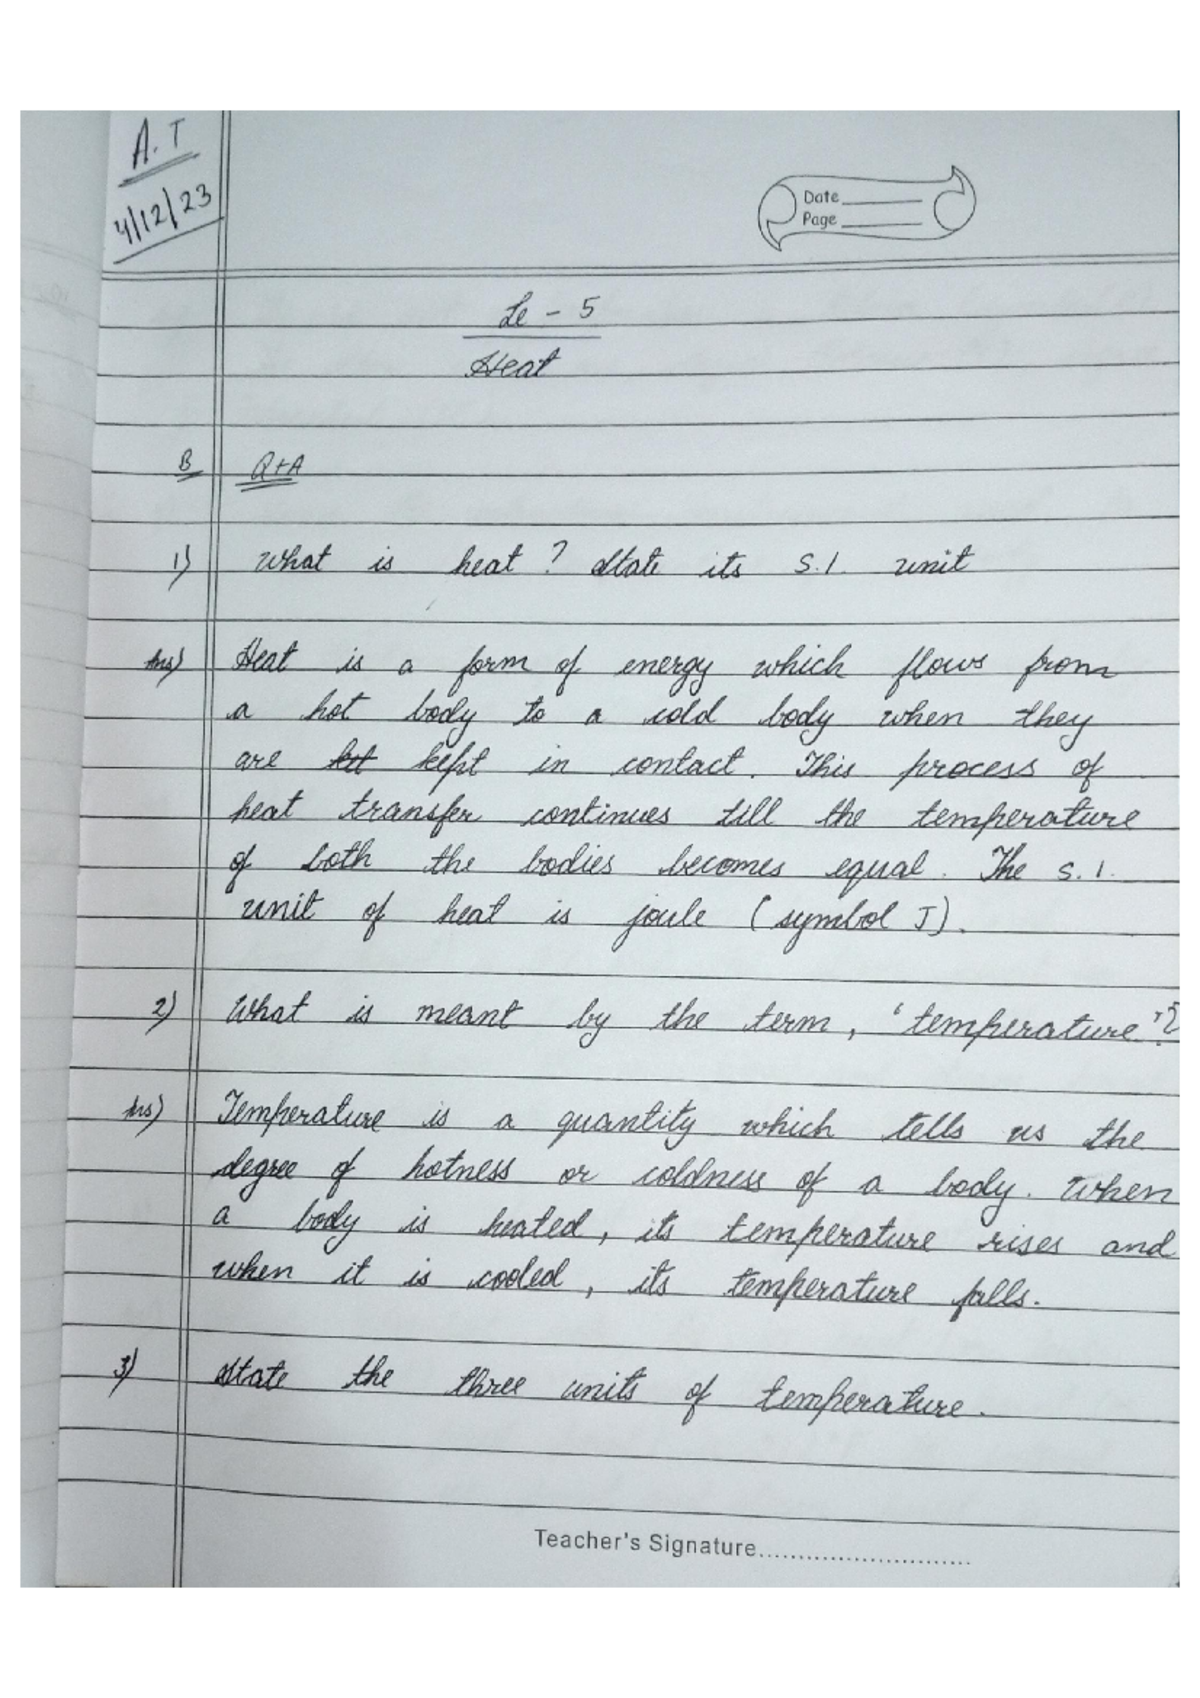 A.T
4/12/23
Date
Page
Le - 5
Heat
B Q+A
1) What is heat ? State its S.I. unit
Ans) Heat is a form of energy which flows from
a hot body to a cold body when they
are kept in contact. This process of
heat transfer continues till the temperature
of both the bodies becomes equal. The S.I.
unit of heat is joule ( symbol J).
2) What is meant by the term, 'temperature'?
Ans) Temperature is a quantity which tells us the
degree of hotness or coldness of a body. When
a body is heated, its temperature rises and
when it is cooled, its temperature falls.
3) State the three units of temperature.
Teacher's Signature..............................